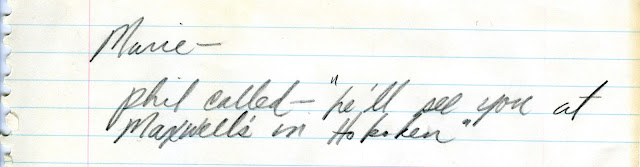 Marie—
phil called— "he'll see you at
Maxwell's in Hoboken"